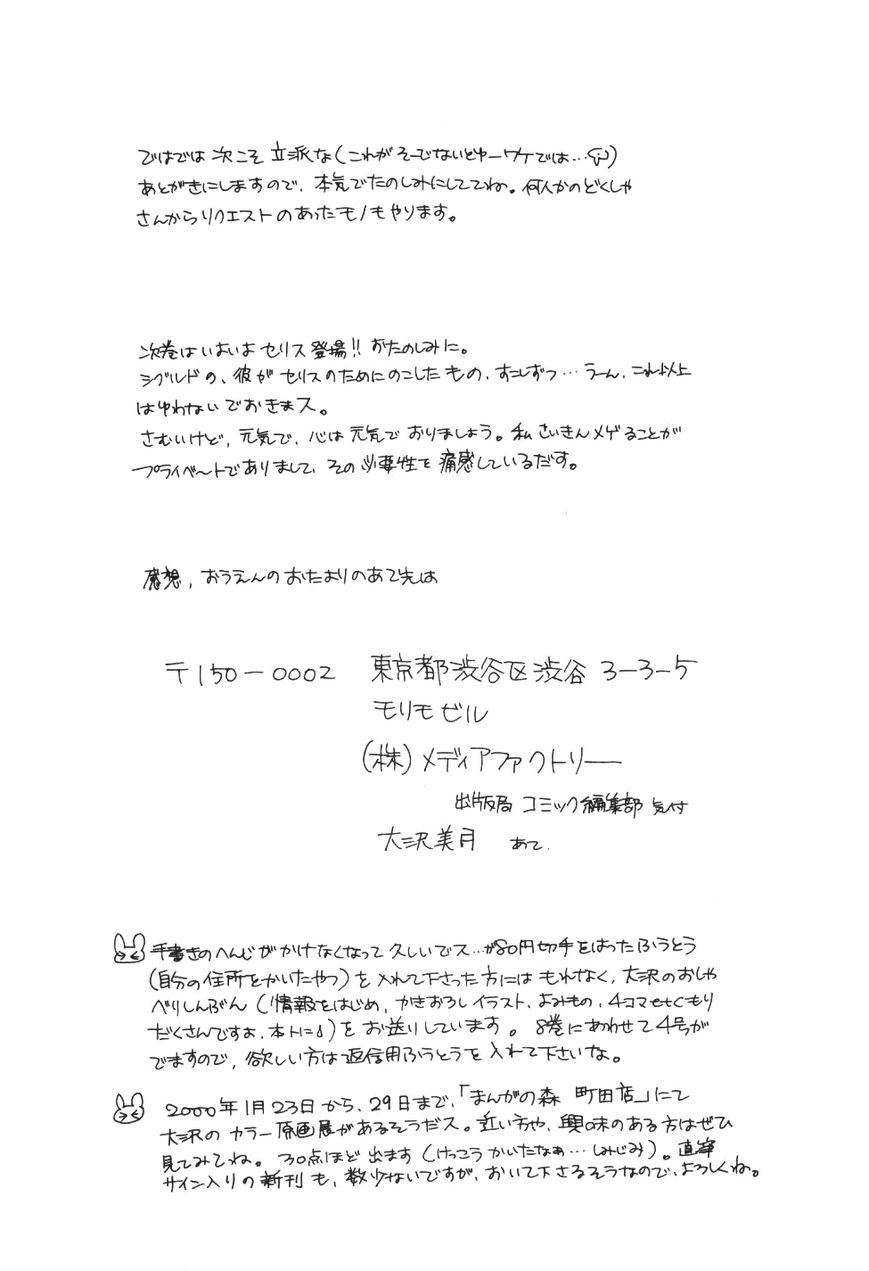 ではでは 次こそ 立派な(これが そーでないとゆーワケでは…)
あとがきにしますので、本気でたのしみにしててね。何人かのどくしゃ
さんからリクエストのあったモノもやります。
次巻はいよいよ セリス登場!! おたのしみに。
シグルドの、彼が セリスのためにのこした もの、すこしずつ… うーん、これ以上
はゆわないでおきまス。
さむいけど、元気で、心は元気で おりましょう。私 さいきん メゲることが
プライベートでありまして、その必要性を痛感しているだす。
感想、おうえんの おたよりのあて先は
〒150-0002 東京都渋谷区渋谷 3-3-5
モリモビル
(株)メディアファクトリー
出版局 コミック編集部 気付
大沢美月 あて.
手書きのへんじが かけなくなって 久しいでス…が80円切手をはった ふうとう
(自分の住所をかいたやつ)を 入れて下さった方には もれなく、大沢のおしゃ
べりしんぶん (情報をはじめ、かきおろし イラスト、よみもの、4コマetcもり
だくさんですよ、本トに)を お送りしています。8巻にあわせて4号が
でますので、欲しい方は返信用ふうとうを 入れて下さいな。
2000年1月23日から、29日まで、「まんがの森 町田店」にて
大沢の カラー原画展があるそうだス。近い方や、興味のある方はぜひ
見てみてね。30点ほど 出ます (けっこう かいたなぁ… しみじみ)。直筆
サイン入りの新刊も、数少ないですが、おいて下さるそうなので、よろしくね。